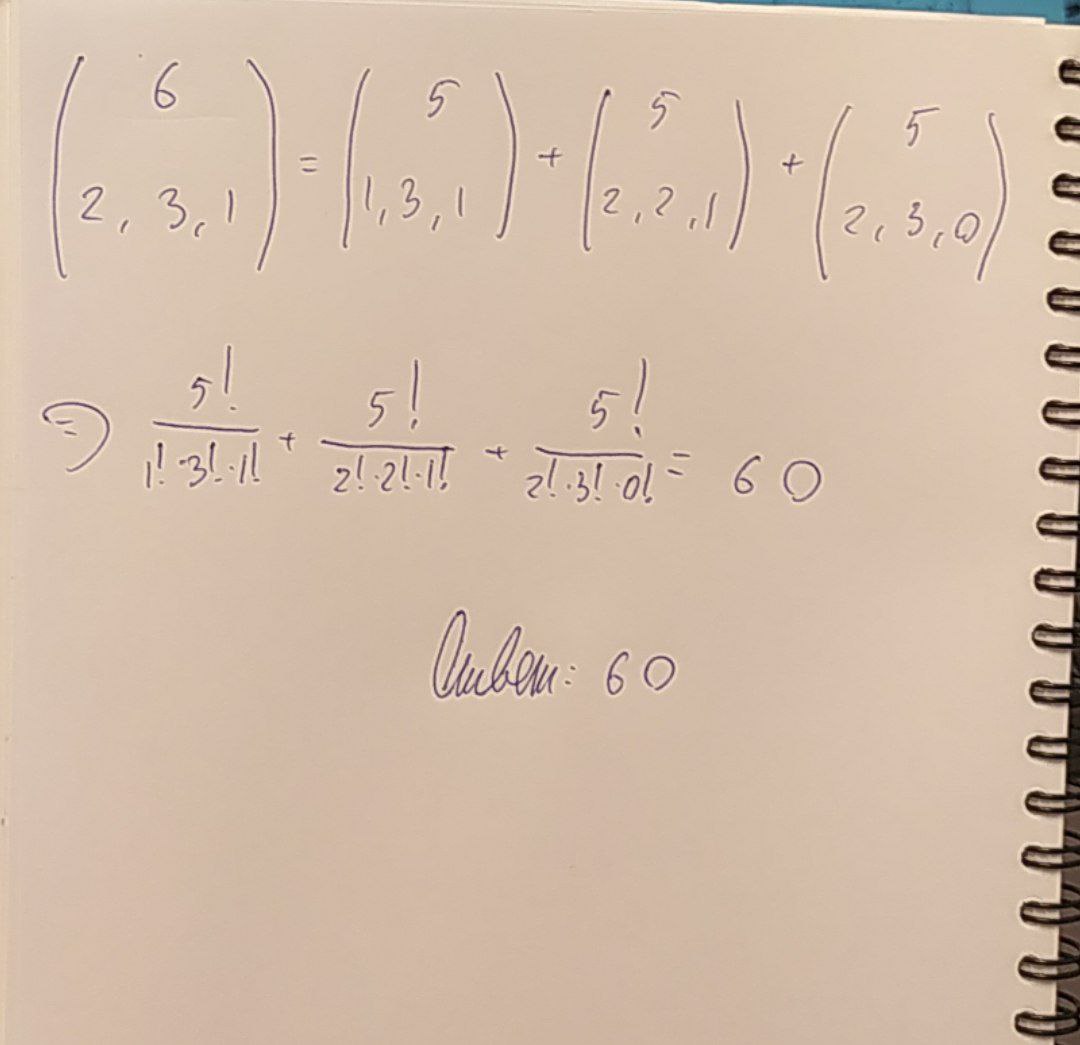 ( 6 2, 3, 1 ) = ( 5 1, 3, 1 ) + ( 5 2, 2, 1 ) + ( 5 2, 3, 0 )
⇒ 5! / 1!·3!·1! + 5! / 2!·2!·1! + 5! / 2!·3!·0! = 60
Ответ: 60